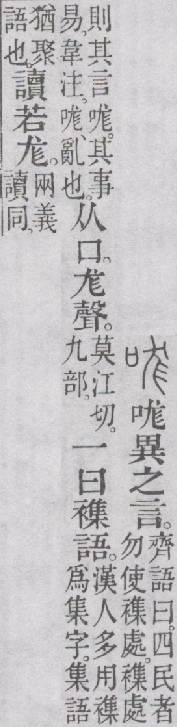 哤哤異之言。
齊語曰。四民者
勿使襍處。襍處
則其言哤。其事
易。韋注。哤、亂也。
从口。尨聲。
莫江切。
九部。
一曰襍語。
漢人多用襍
爲集字。集語
猶聚
語也。
讀若尨。
兩義
讀同。